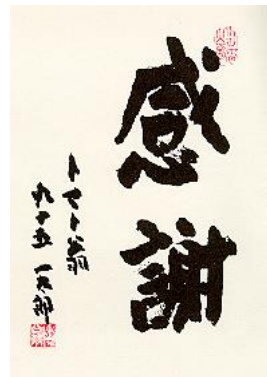 感謝
トマト翁
九十五 一五郎